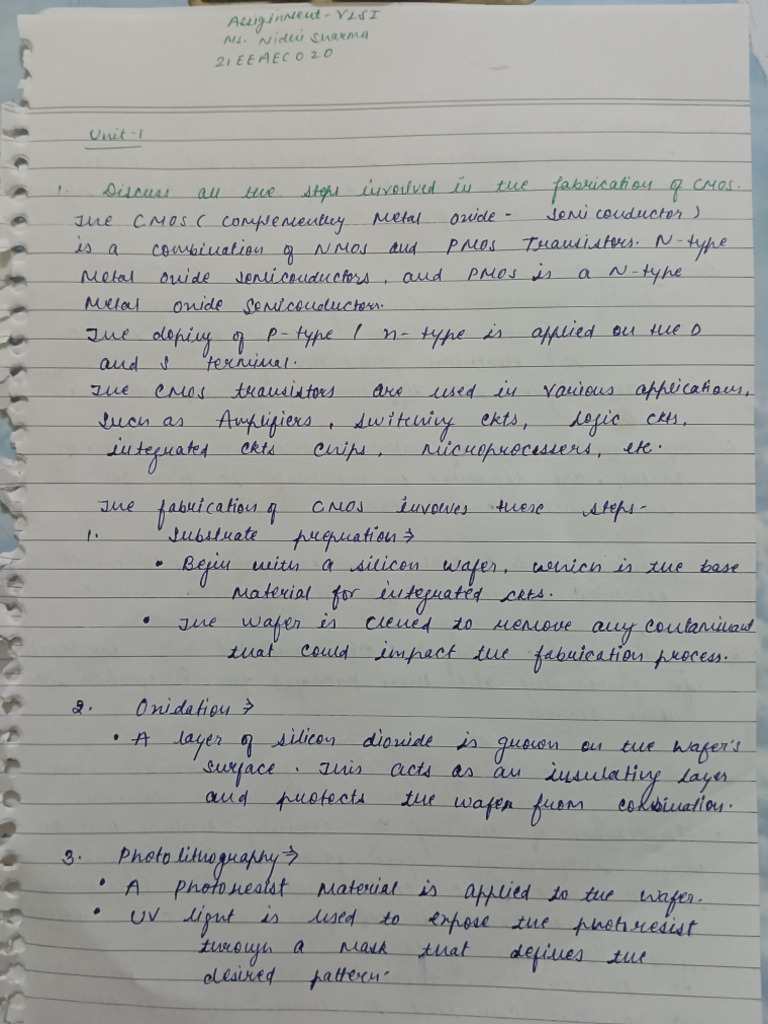 Assignment - VLSI
Ms. Nidhi Sharma
21EEAEC020
Unit-1
1. Discuss all the steps involved in the fabrication of CMOS.
The CMOS ( Complementry Metal oxide - Semiconductor)
is a combination of NMOS and PMOS Transistors. N-type
Metal oxide semiconductors, and PMOS is a N-type
Metal oxide semiconductors.
The doping of P-type / n-type is applied on the D
and S terminal.
The CMOS transistors are used in various applications,
such as Amplifiers, switching ckts, Logic ckts,
integrated ckts chips, Microprocessers, etc.
The fabrication of CMOS involves these steps-
1. Substrate prepration →
• Begin with a silicon wafer, which is the base
material for integrated ckts.
• The wafer is clened to remove any contaminant
that could impact the fabrication process.
2. Oxidation →
• A layer of silicon dioxide is grown on the wafer's
surface. This acts as an insulating layer
and protects the wafer from
3. Photolithography →
• A photoresist material is applied to the wafer.
• UV light is used to expose the photoresist
through a mask that defines the
desired pattern.